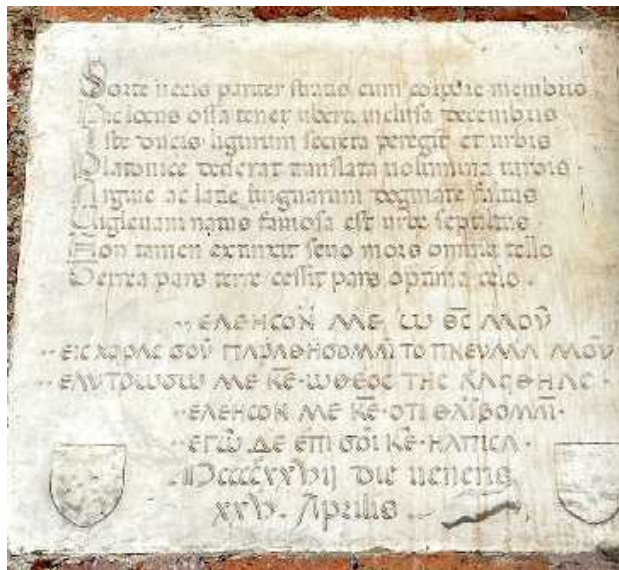 Sorte necis pariter stratis cum corpore membris
Hic locus ossa tenet uberti inclusa decembris
Iste ducis ligurum secreta peregit et urbis
Platonice dederat translata uolumina turbis.
Argiue ac latie linguarum dogmate fultus
Uigleuani natus famosa est urbe sepultus
Non tamen extinxit seuo mors omnia tello
Terrea pars terre cessit pars optima celo.
·· ΕΛΕΗCΟΝ ΜΕ, Ω Θ̅C̅ ΜΟΥ
·· ΕΙC CΟΥ ΤΟ ΠΝΕΥΜΑ ΜΟΥ
·· ΕΛΥΤΡΩCΩ ΜΕ Κ̅Ε̅·ΩΘΕΟC ΤΗC ΑΛΗΘΗΑC·
·· ΕΛΕΗCΟΝ ΜΕ Κ̅Ε̅·ΟΤΙ ΘΛΙΒΟΜΑΙ·
·· ΕΓΩ ΔΕ ΕΠΙ CΟΙ Κ̅Ε̅·ΗΛΠΙCΑ·
Mccccxxvij die ueneris
xxv. Aprilis.